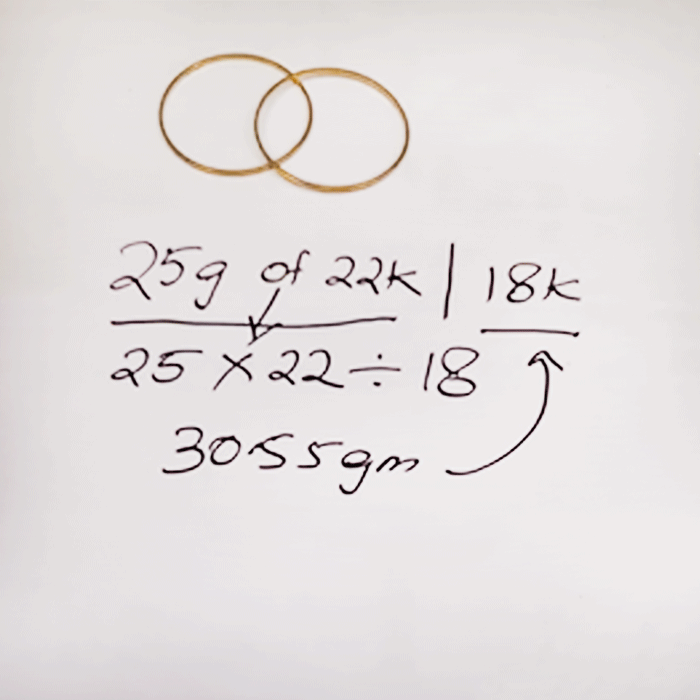 25g of 22k | 18k
25 × 22 ÷ 18
30.55gm